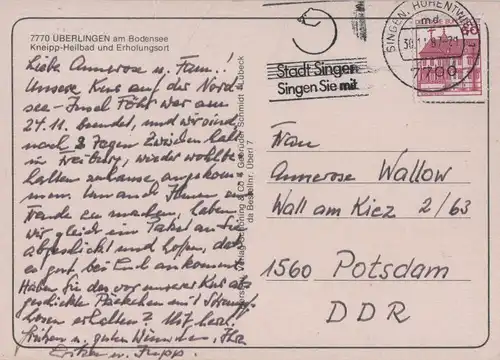 7770 ÜBERLINGEN am Bodensee
Kneipp-Heilbad und Erholungsort
Liebe Annerose u. Fam.!
Unsere Kur auf der Nord
see-Insel Föhr war am
27.11. beendet, und wir sind
nach 2 Tagen Zwischenhalt
in Freiburg, wieder wohlbe
halten zuhause angekom
men. Um auch Ihnen eine
Freude zu machen, haben
wir gleich ein Paket an Sie
abgeschickt und hoffen, daß
es gut bei Euch ankommt.
Haben Sie das vor unserer Kur ab
geschickte Päckchen mit Strumpf
hosen erhalten? Mit herzl.
Grüßen u. guten Wünschen, Ihre
u.
Verlag Schöning & Co + Gebrüder Schmidt, Lübeck
Bestellnr. Überl 7
Stadt Singen
Singen Sie mit
SINGEN, HOHENTWIEL
md
7700
60
Frau
Annerose Wallow
Wall am Kiez 2/63
1560 Potsdam
DDR